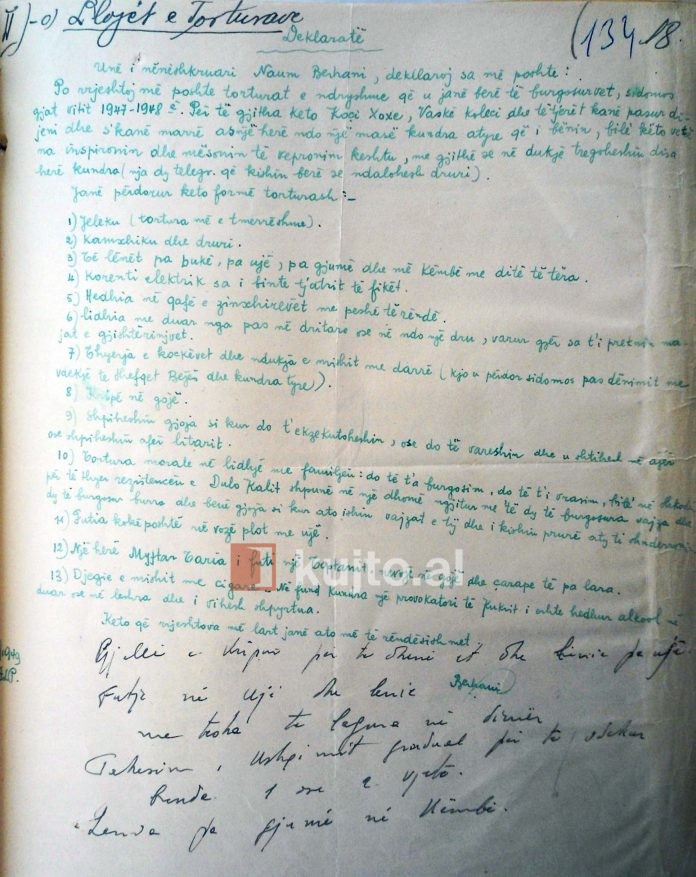 II)-c) Llojet e Torturave
(134 18.
Deklaratë
Unë i nënëshkruari Naum Berhani, deklaroj sa më poshtë:
Po rrjeshtoj më poshtë torturat e ndryshme që u janë berë të burgosurvet, sidomos
gjat vitit 1947-1948ë. Për të gjitha keto Koçi Xoxe, Vaskë Koleci dhe të tjerët kanë pasur di-
jeni dhe s'kanë marrë asnjë herë ndo një masë kundra atyre që i bënin, bilë këto vetë
na inspironin dhe mësonin të vepronjim keshtu, me gjithë se në dukje tregoheshin disa
herë kundra (nja dy telegr. që kishin berë se ndalohesh druri).
Janë përdorur keto formë torturash:-
1) Jeleku (tortura më e tmerrëshme).
2) Kamxhiku dhe druri.
3) Të lënët pa bukë, pa ujë, pa gjumë dhe më këmbë me ditë të tëra.
4) Korenti elektrik sa i binte tjatrit të fikët.
5) Hedhia në qafë e zinxhirevët me peshë të rëndë.
6) Lidhia me duar nga pas në dritare ose në ndo një dru, varur gjër sa t'i pretnin ma-
jat e gjishtërinjvet.
7) Thyerja e kockëvet dhe ndukja e mishit me darrë (kjo u përdor sidomos pas dënimit me
vdekje të Shefqet Bejës dhe kundra tyre).
8) Kripë në gojë.
9) Shpiheshin gjoja si kur do t'ekzekutoheshin, ose do të vareshin dhe u shtihesh në ajër
ose shpiheshin afër litarit.
10) Tortura morale në lidhje me familjen: do të t'a burgosim, do të t'i vrasim, bilë në
për të thyer rezistencën e Dulo Kalit shpunë në një dhomë ngjitur me të dy të burgosura vajza dhe
dy të burgosur burra dhe bënë gjoja si kur ato ishin vajzat e tij dhe i kishin prurë aty t'i çnderronin
11) Futia kokë poshtë në vozë plot me ujë.
12) Një herë Myftar Taria i futi një në gojë dhe çarape të pa lara.
13) Djegie e mishit me cigare. Në fund kunra një provokatori të Kukrit i eshte hedhur alkool në
duar ose në leshra dhe i vihesh shpyrtua.
Keto që rrjeshtova më lart janë ato më të rëndësishmet.
Berhani
1949
kujto.al
Gjelli e kripur për të dhënë et dhe lënie pa ujë
Futje në ujë dhe lënie
me rroba të lagura në dimër
ushqimit gradual për të
brenda 1 ose 2 vjetë.
Lenda pa gjumë në këmbë.